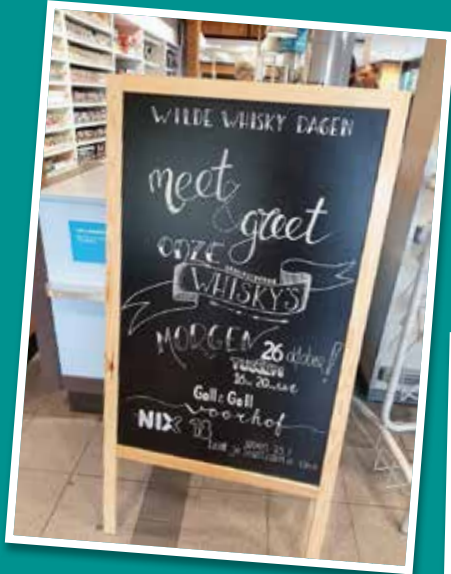 WILDE WHISKY DAGEN
meet
&
greet
ONZE
WHISKY'S
MORGEN 26 oktober!
TUSSEN
16 20
Gall & Gall
voorhof
NIX 18